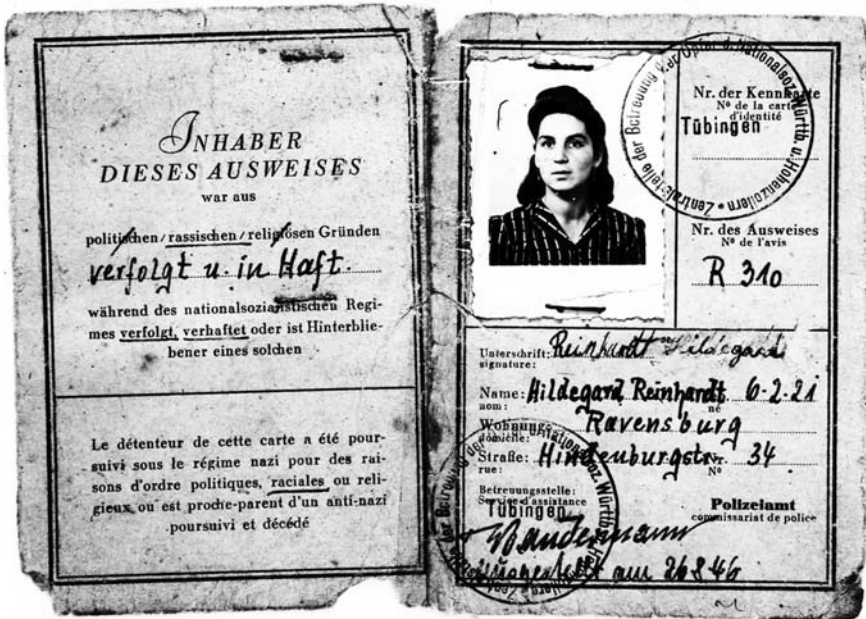 INHABER
DIESES AUSWEISES
war aus
politischen/rassischen/religiösen Gründen
verfolgt u. in Haft.
während des nationalsozialistischen Regi-
mes verfolgt, verhaftet oder ist Hinterblie-
bener eines solchen
Le détenteur de cette carte a été pour-
suivi sous le régime nazi pour des rai-
sons d'ordre politiques, raciales ou reli-
gieux, ou est proche-parent d'un anti-nazi
poursuivi et décédé
Nr. der Kennkarte
Nº de la carte
d'identité
Tübingen
Zentralstelle der Betreuung der Opfer d. Nationalsoz. Württb. u. Hohenzollern
Nr. des Ausweises
Nº de l'avis
R 310
Unterschrift: Reinhardt Hildegard
signature:
Name: Hildegard Reinhardt 6-2-21
nom: né
Wohnung: Ravensburg
domicile:
Straße: Hindenburgstr. Nr. 34
rue: Nº
Betreuungsstelle:
Service d'assistance
Tübingen
Polizeiamt
commissariat de police
Ausgestellt am 26 8 46